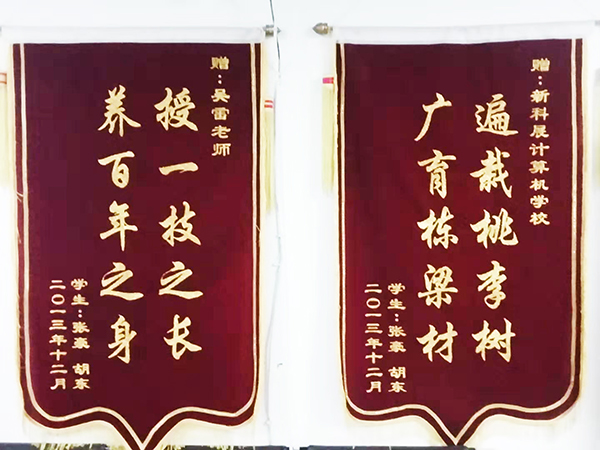 赠：吴雷老师
授一技之长
养百年之身
学生：张豪 胡东
二〇一三年十二月
赠：新科展计算机学校
遍栽桃李树
广育栋梁材
学生：张豪 胡东
二〇一三年十二月